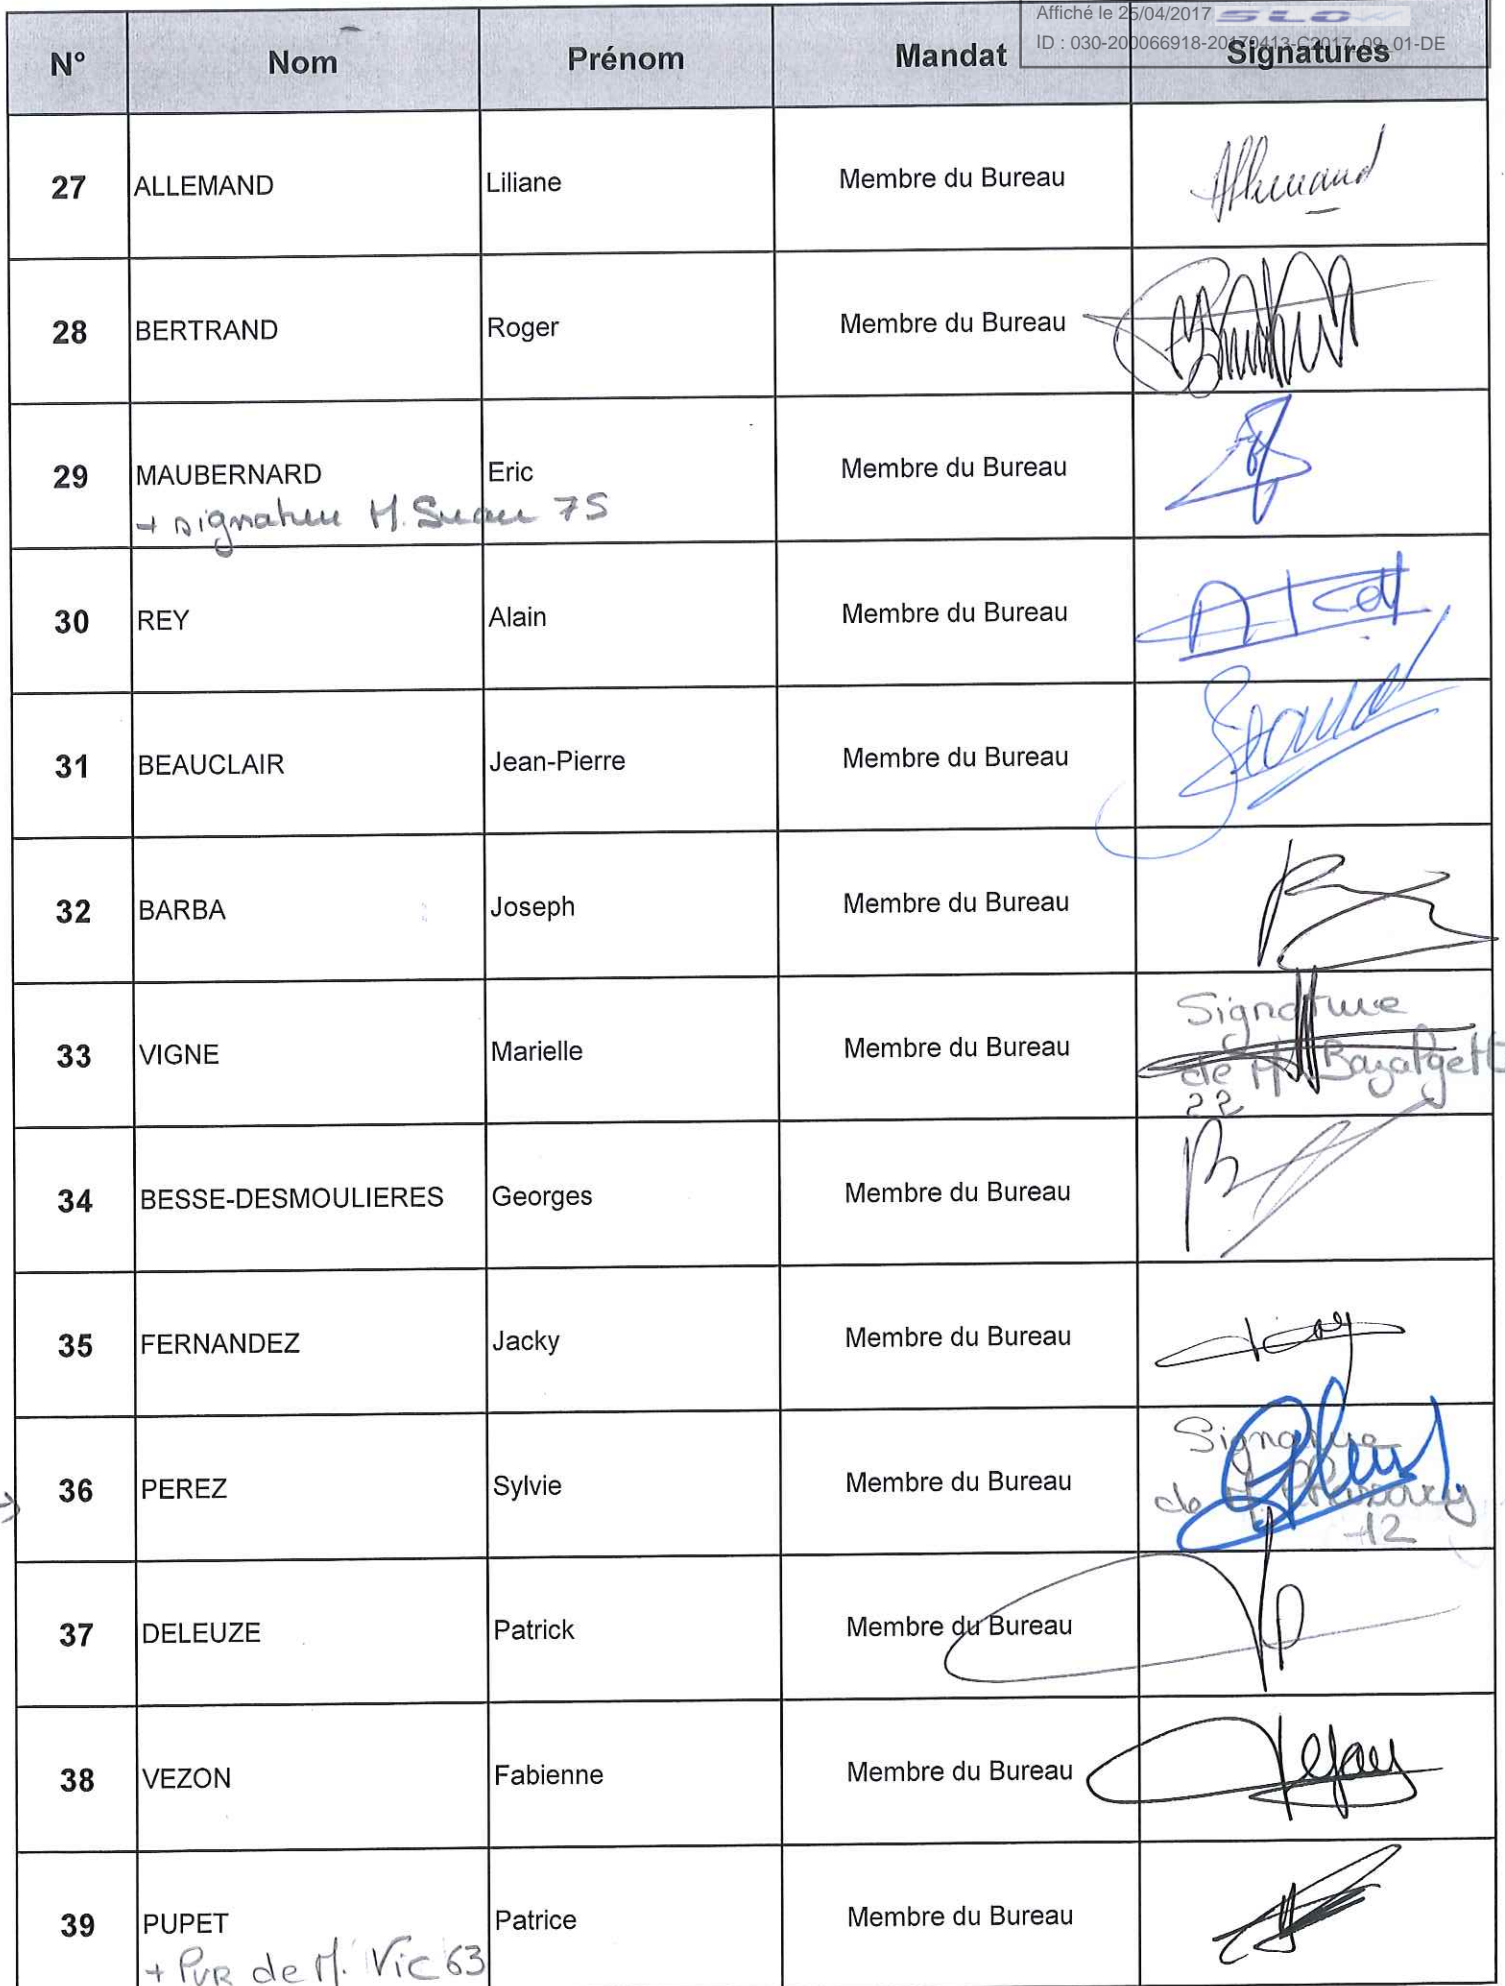 Affiché le 25/04/2017 SLOW
ID : 030-200066918-20170413-C2017_09_01-DE
N° Nom Prénom Mandat Signatures
27 ALLEMAND Liliane Membre du Bureau Allemand
28 BERTRAND Roger Membre du Bureau
29 MAUBERNARD Eric Membre du Bureau
+ signature M. Suau 75
30 REY Alain Membre du Bureau
31 BEAUCLAIR Jean-Pierre Membre du Bureau
32 BARBA Joseph Membre du Bureau
33 VIGNE Marielle Membre du Bureau
Signature
de M. Bazalgett
22
34 BESSE-DESMOULIERES Georges Membre du Bureau
35 FERNANDEZ Jacky Membre du Bureau
36 PEREZ Sylvie Membre du Bureau
Signature
de M.
12
37 DELEUZE Patrick Membre du Bureau
38 VEZON Fabienne Membre du Bureau
39 PUPET Patrice Membre du Bureau
+ PVR de M. Vic 63